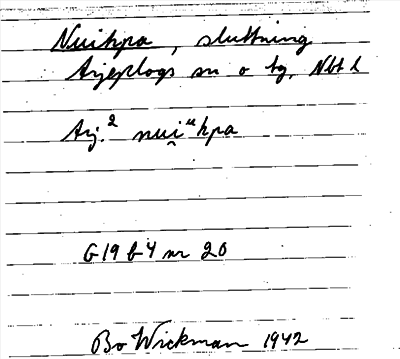 Nuikpa, sluttning
Arjeplogs sn o tg, Nbt l
Arj.² nui̯ᵘkpa
G 19 b 4 nr 20
Bo Wickman 1942